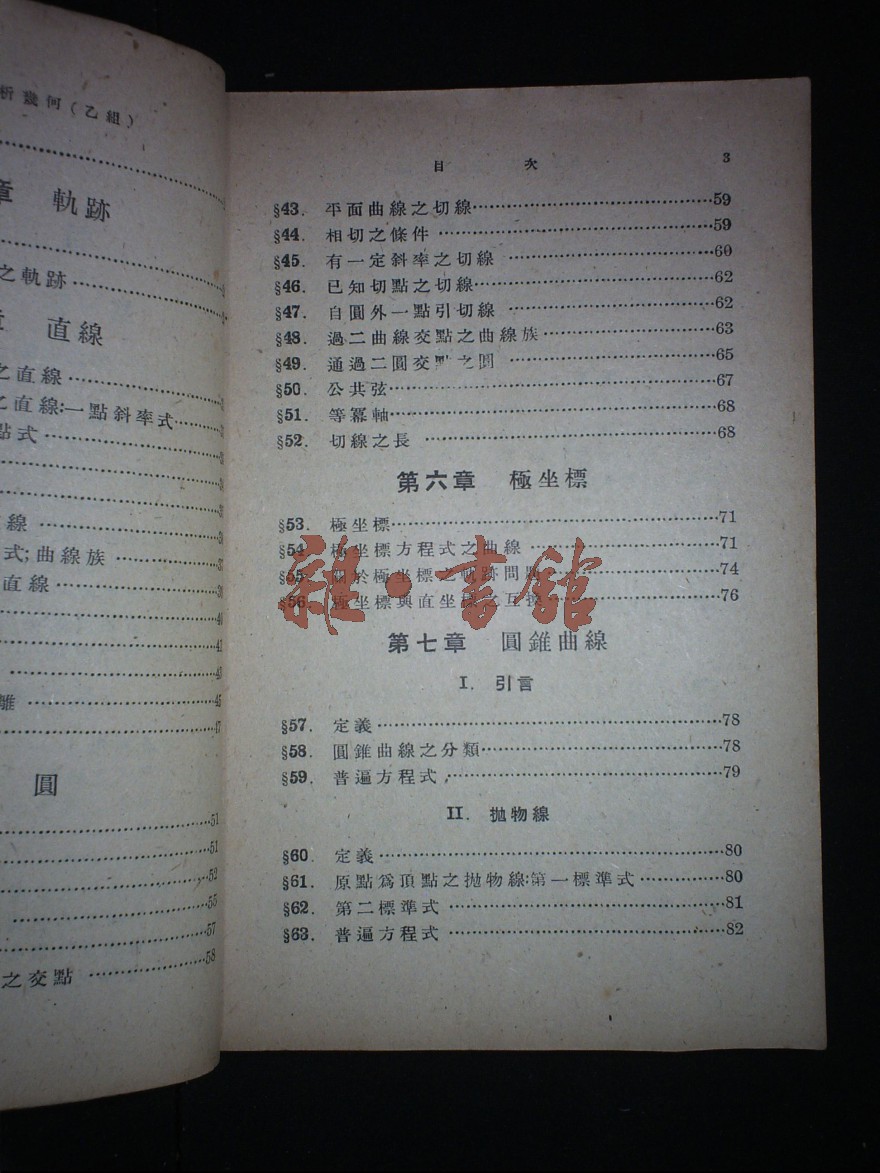 析幾何(乙組)
章 軌跡
之軌跡
章 直線
之直線
之直線:一點斜率式
點式
線
式;曲線族
直線
40
41
43
離 45
47
圓
51
51
52
55
57
之交點 58
目 次 3
§43. 平面曲線之切線 59
§44. 相切之條件 59
§45. 有一定斜率之切線 60
§46. 已知切點之切線 62
§47. 自圓外一點引切線 62
§48. 過二曲線交點之曲線族 63
§49. 通過二圓交點之圓 65
§50. 公共弦 67
§51. 等冪軸 68
§52. 切線之長 68
第六章 極坐標
§53. 極坐標 71
§54. 極坐標方程式之曲線 71
§55. 關於極坐標之軌跡問題 74
§56. 極坐標與直坐標之互換 76
雜·書館
第七章 圓錐曲線
I. 引言
§57. 定義 78
§58. 圓錐曲線之分類 78
§59. 普遍方程式 79
II. 拋物線
§60. 定義 80
§61. 原點爲頂點之拋物線:第一標準式 80
§62. 第二標準式 81
§63. 普遍方程式 82